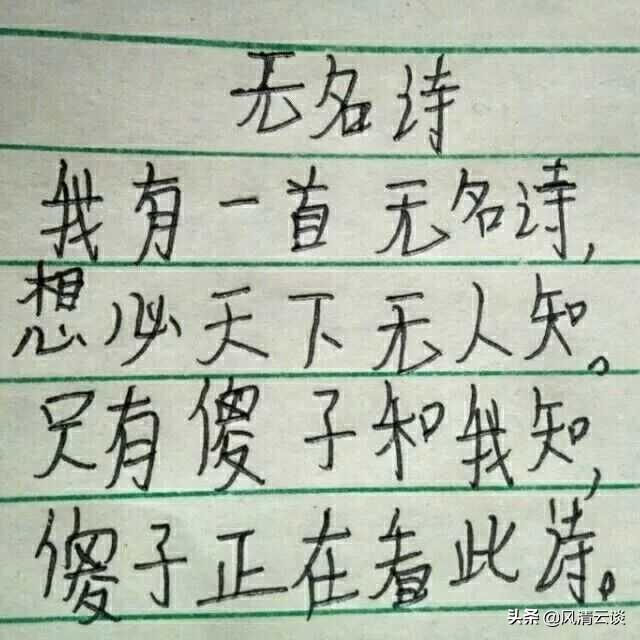 无名诗
我有一首无名诗,
想必天下无人知。
只有傻子和我知,
傻子正在看此诗。
头条 @风清云谈